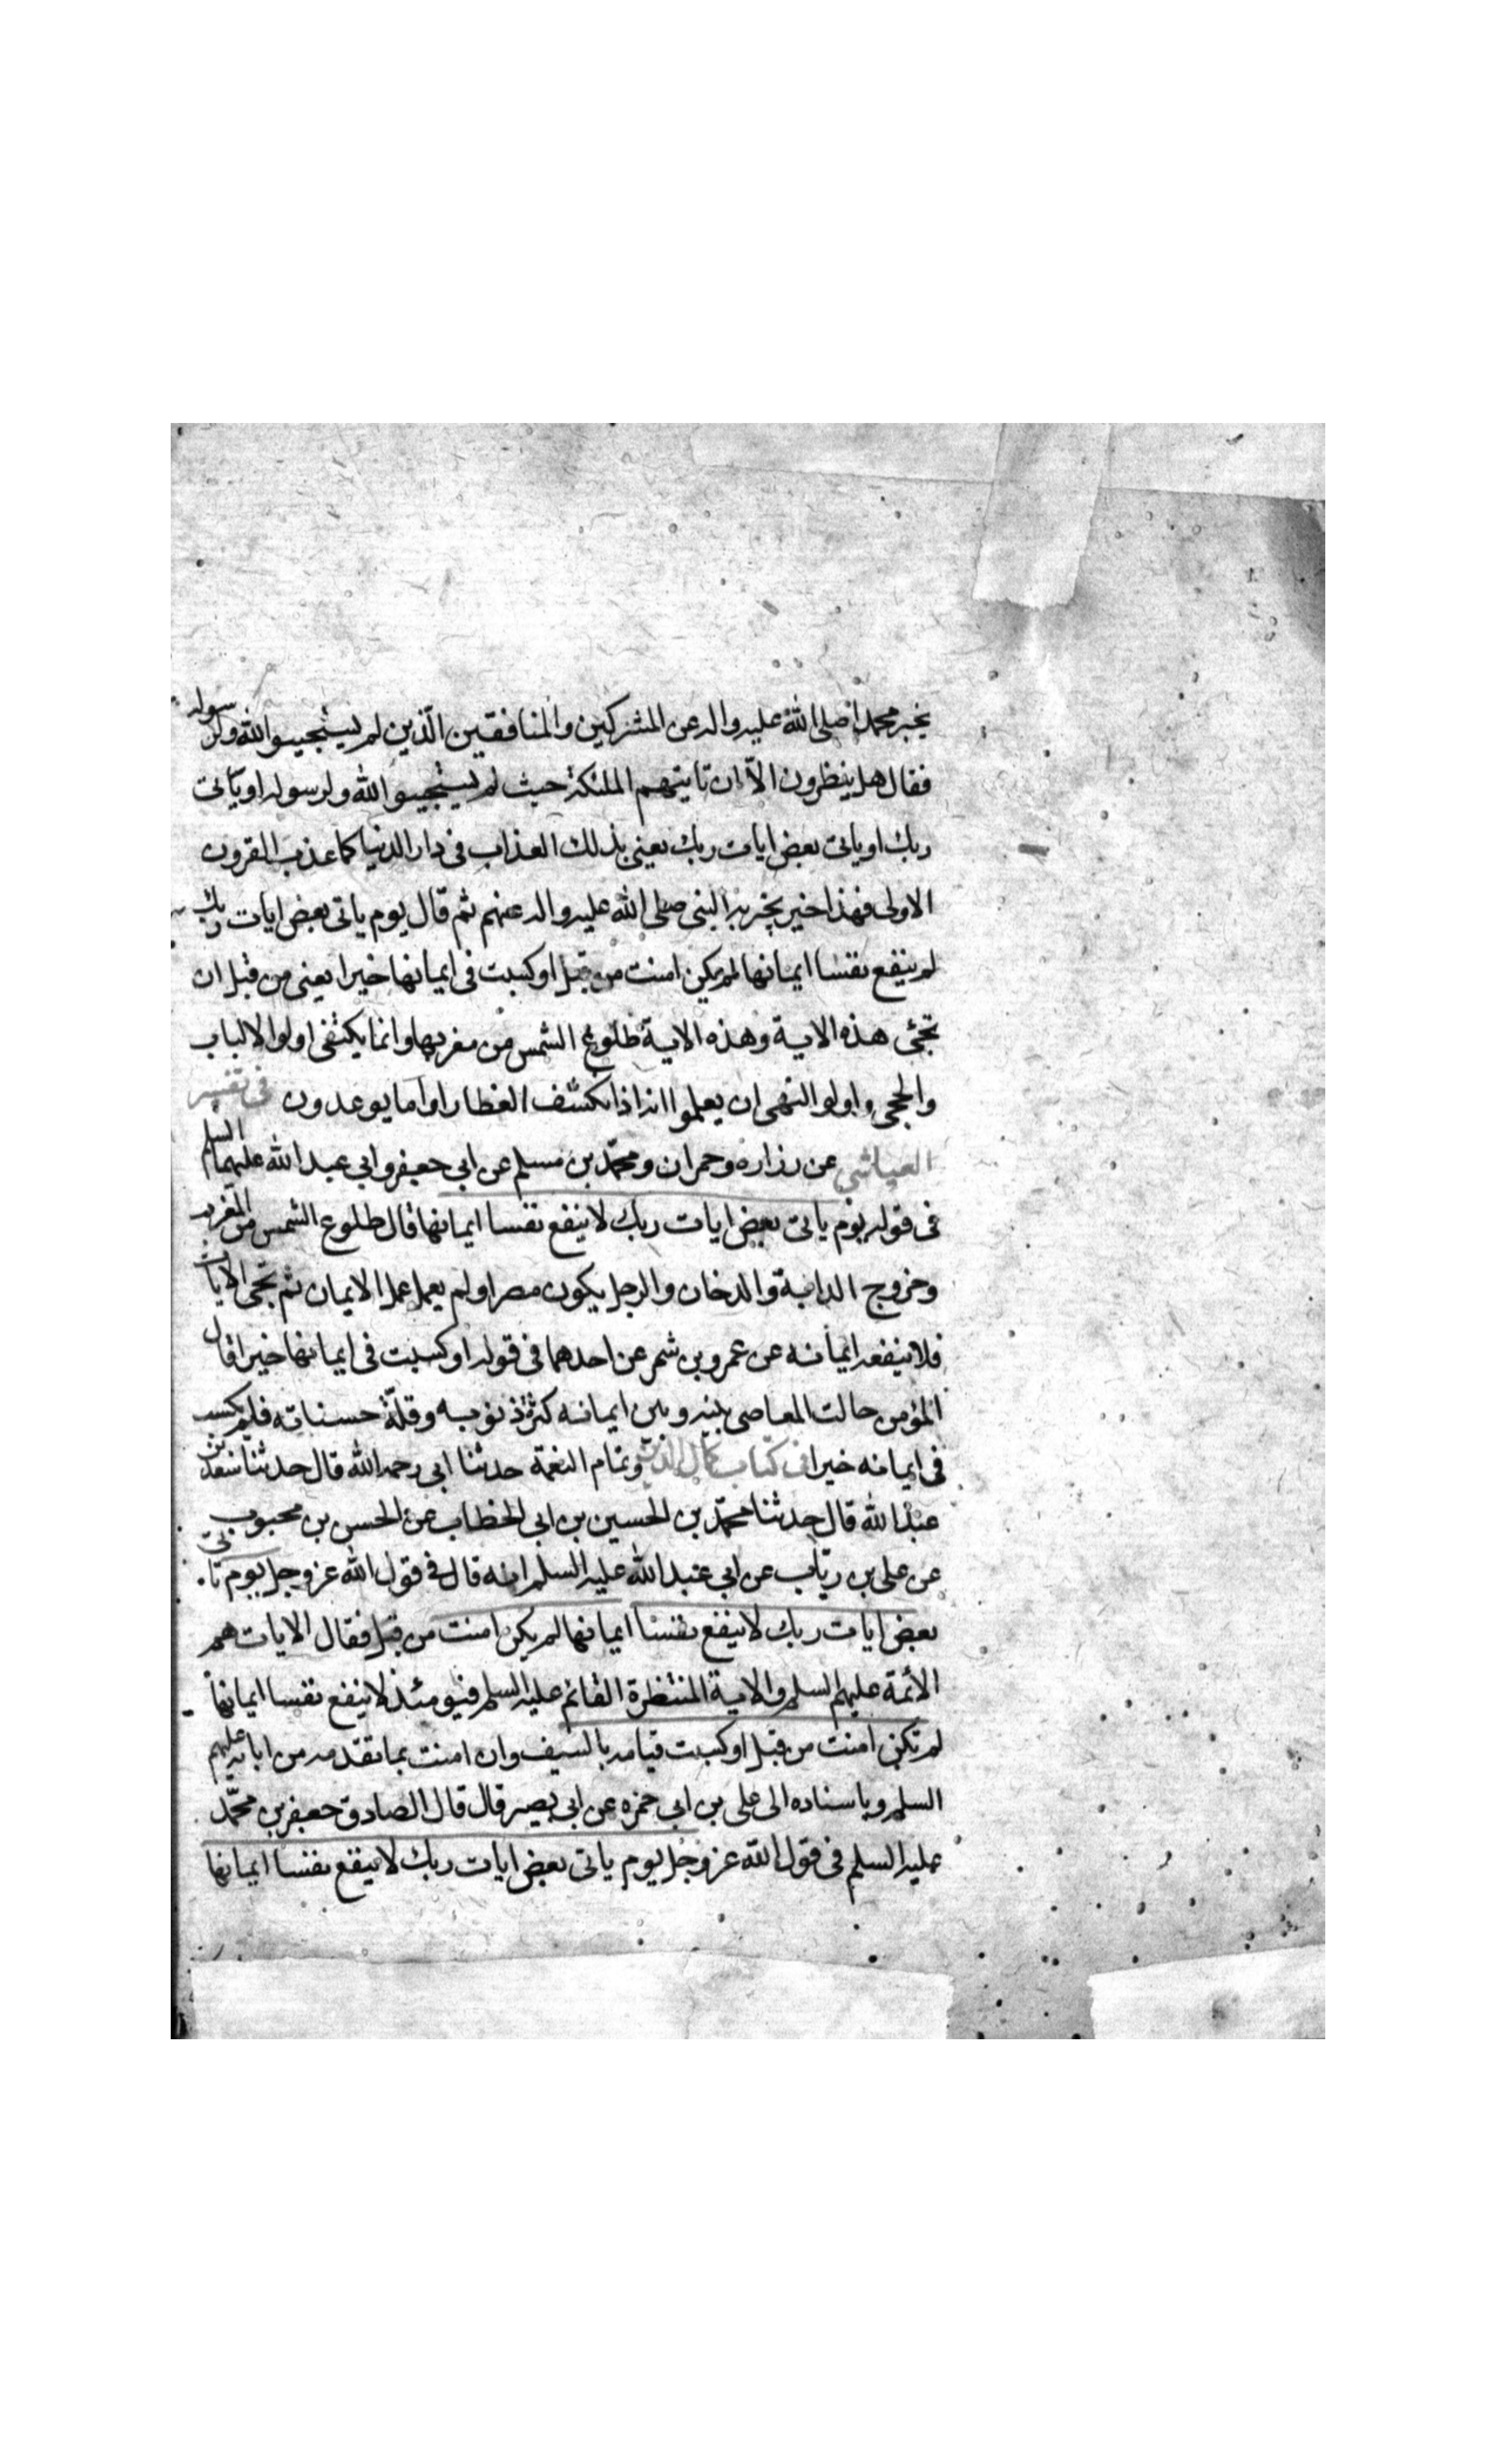 يخبر محمدا صلى الله عليه واله عن المشركين والمنافقين الّذين لم يستجيبوا الله ولرسوله
فقال هل ينظرون الاّ ان تايتهم الملئكة حيث لم يستجيبوا الله ولرسوله او ياتى
ربك او ياتى بعض ايات ربك يعنى بذلك العذاب فى دار الدنيا كما عذب القرون
الاولى فهذا خبر يخبر به النبى صلى الله عليه واله عنهم ثم قال يوم ياتى بعض ايات ربك
لم ينفع نفسا ايمانها لم يكن امنت من قبل او كسبت فى ايمانها خيرا يعنى من قبل ان
تجئى هذه الاية وهذه الاية طلوع الشمس من مغربها وانما يكتفى اولوا الالباب
والحجى واولوا النهى ان يعلموا انه اذا انكشف الغطا راوا ما يوعدون فى تفسير
العياشى عن رزاره وحمران ومحمّد بن مسلم عن ابى جعفر وابى عبد الله عليهما السلم
فى قوله يوم ياتى بعض ايات ربك لا ينفع نفسا ايمانها قال طلوع الشمس من المغرب
وخروج الدابة والدخان والرجل يكون مصرا ولم يعمل عمل الايمان ثم تجى الايات
فلا ينفعه ايمانه عن عمرو بن شمر عن احدهما فى قوله او كسبت فى ايمانها خيرا قال
المؤمن حالت المعاصى بينه وبين ايمانه كثرة ذنوبه وقلّة حسناته فلم يكسب
فى ايمانه خيرا فى كتاب كمال الدين وتمام النعمة حدثنا ابى رحمه الله قال حدثنا سعد بن
عبد الله قال حدثنا محمّد بن الحسين بن ابى الخطاب عن الحسن بن محبوب
عن على بن رياب عن ابى عبد الله عليه السلم انه قال فى قول الله عز وجل يوم تاتى
بعض ايات ربك لا ينفع نفسا ايمانها لم يكن امنت من قبل فقال الايات هم
الأئمة عليهم السلم والاية المنتظرة القائم عليه السلم فيومئذ لا ينفع نفسا ايمانها
لم تكن امنت من قبل او كسبت قيامه بالسيف وان امنت بما تقدمه من ابائه عليهم
السلم وباسناده الى على بن ابى حمزه عن ابى بصير قال قال الصادق جعفر بن محمّد
عليه السلم فى قول الله عز وجل يوم ياتى بعض ايات ربك لا ينفع نفسا ايمانها